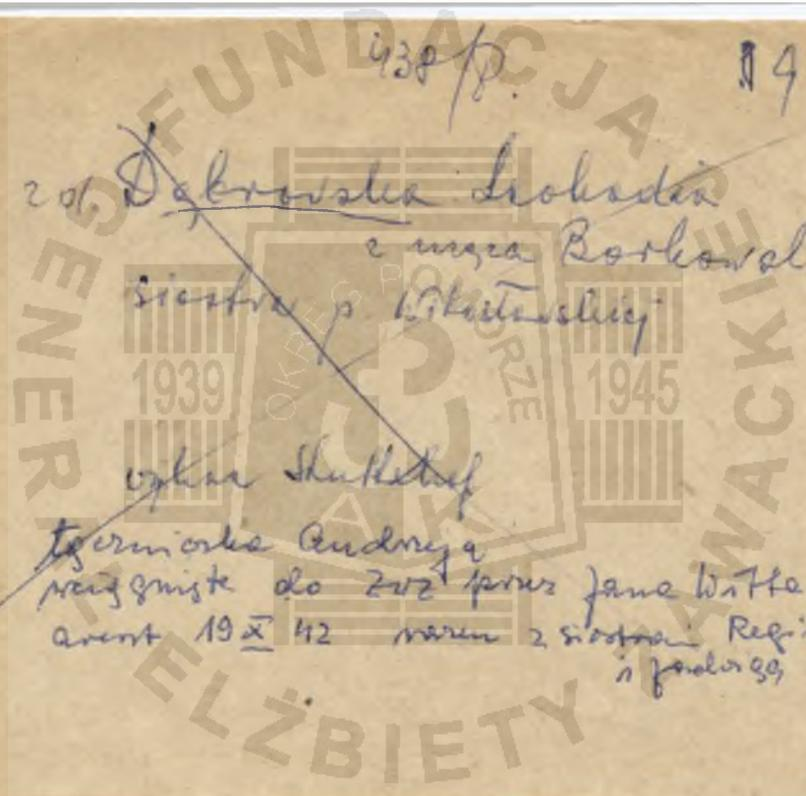 438/8. 9
Dąbrowska Leokadia
z męża Borkowsk
siostra p. Wikułowskiej
Stutthof
łączniczka Andrzeja
wciągnięta do ZWZ przez Jana Witta
areszt 19 X 42 razem z siostrami Regi
i Jadwigą
FUNDACJA GENERAŁ ELŻBIETY ZAWACKIEJ
OKRĘG POMORZE
1939 1945
AK